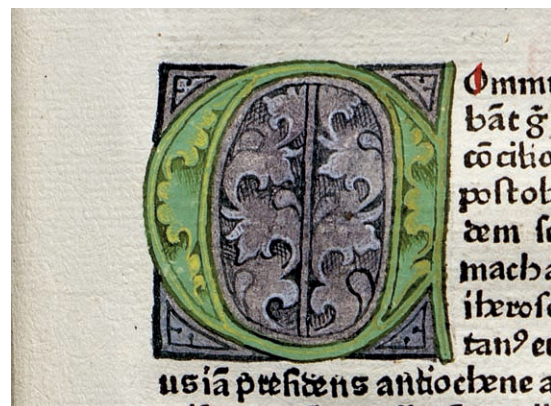 Ommu
bāt g̃
cōcilio
postol
dem se
macha
iherosc
tanꝰ eu
usiā p̄sidens antiochene a